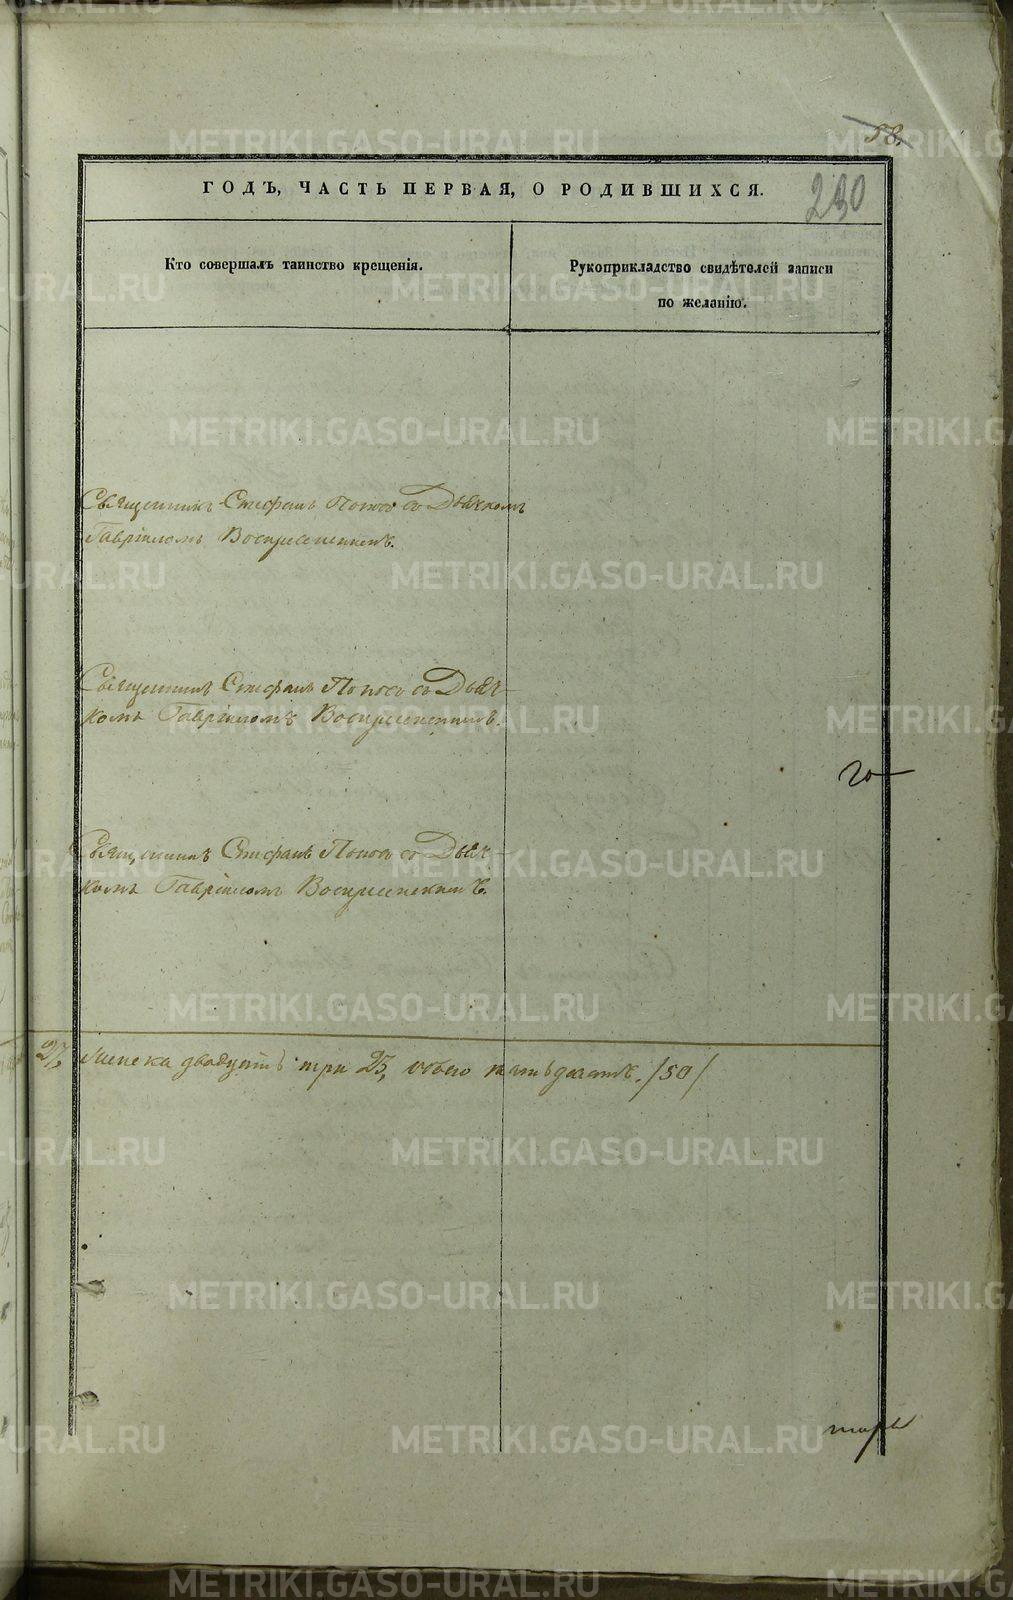 58.
ГОДЪ, ЧАСТЬ ПЕРВАЯ, О РОДИВШИХСЯ.
230
Кто совершалъ таинство крещенія.
Рукоприкладство свидѣтелей записи
по желанію.
Священникъ Стефанъ Поповъ съ Дьячкомъ
Гавріиломъ Воскресенскимъ.
Священникъ Стефанъ Поповъ съ Дьяч-
комъ Гавріиломъ Воскресенскимъ.
го
Священникъ Стефанъ Поповъ съ Дьяч-
комъ Гавріиломъ Воскресенскимъ.
27, женска двадцать три 23, обоего пятьдесятъ /50/
METRIKI.GASO-URAL.RU